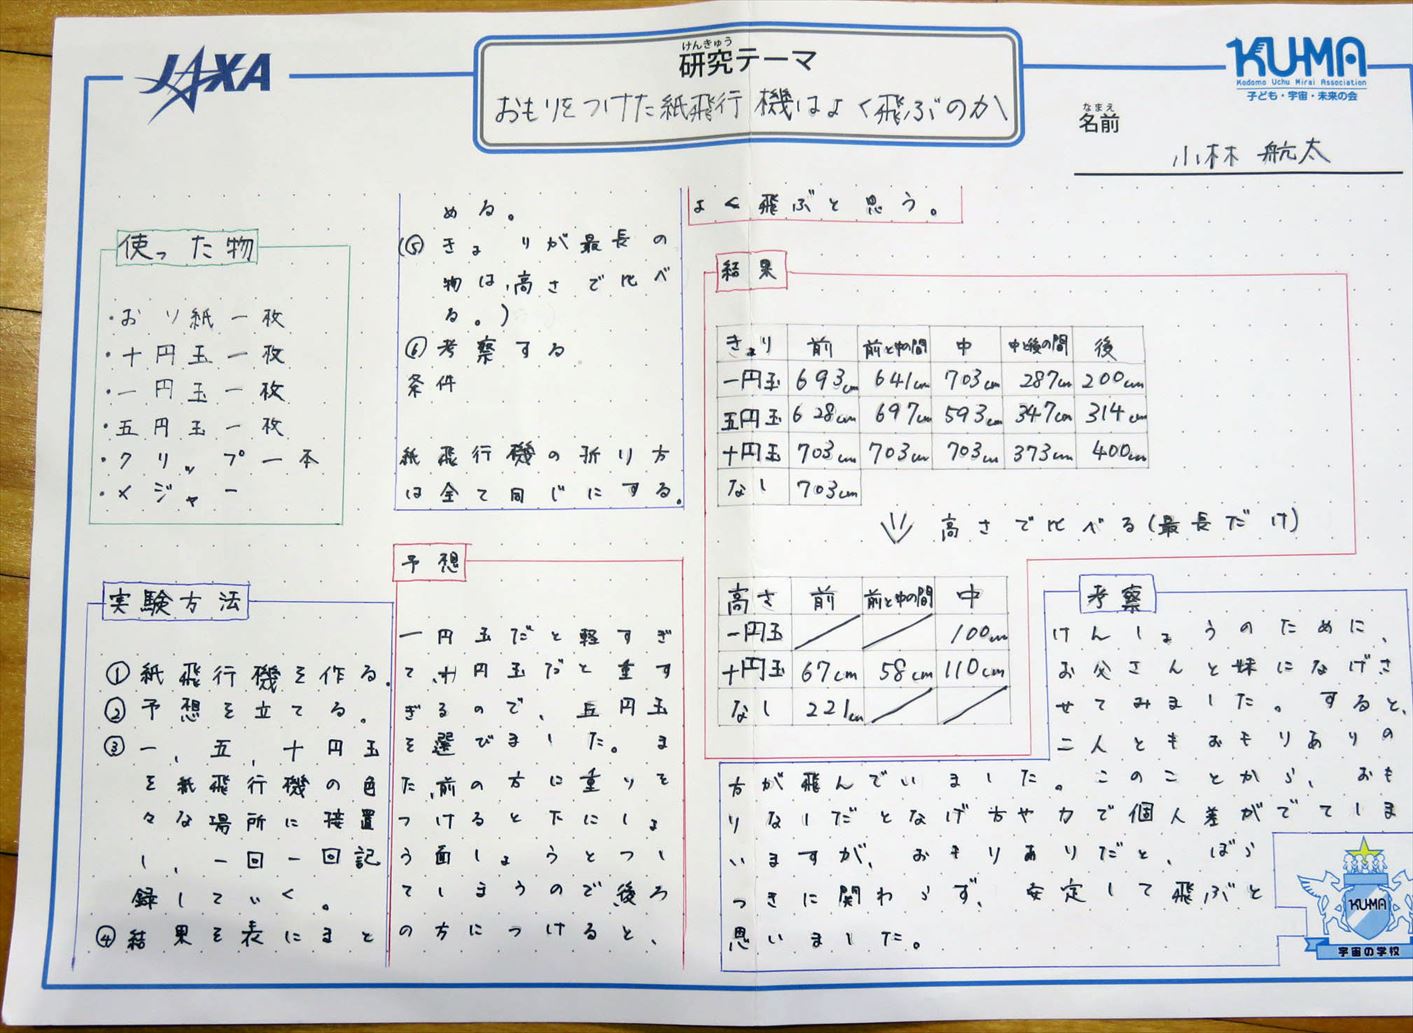 JAXA
けんきゅう
研究テーマ
おもりをつけた紙飛行機はよく飛ぶのか
KU-MA
Kodomo Uchu Mirai Association
子ども・宇宙・未来の会
なまえ
名前
小林 航太
使った物
・おり紙一枚
・十円玉一枚
・一円玉一枚
・五円玉一枚
・クリップ一本
・メジャー
実験方法
①紙飛行機を作る。
②予想を立てる。
③一、五、十円玉
を紙飛行機の色
々な場所に接置
し、一回一回記
録していく。
④結果を表にまと
める。
(⑤きょりが最長の
物は、高さで比べ
る。)
⑥考察する
条件
紙飛行機の折り方
は全て同じにする。
予想
一円玉だと軽すぎ
て、十円玉だと重す
ぎるので、五円玉
を選びました。ま
た、前の方に重りを
つけると下にしょ
う面しょうとつし
てしまうので後ろ
の方につけると、
よく飛ぶと思う。
結果
きょり 前 前と中の間 中 中と後の間 後
一円玉 693cm 641cm 703cm 287cm 200cm
五円玉 628cm 697cm 593cm 347cm 314cm
十円玉 703cm 703cm 703cm 373cm 400cm
なし 703cm
高さで比べる(最長だけ)
高さ 前 前と中の間 中
一円玉 100cm
十円玉 67cm 58cm 110cm
なし 221cm
考察
けんしょうのために、
お父さんと妹になげさ
せてみました。すると、
二人ともおもりありの
方が飛んでいました。このことから、おも
りなしだとなげ方や力で個人差がでてしま
いますが、おもりありだと、ばら
つきに関わらず、安定して飛ぶと
思いました。
KU-MA
宇宙の学校